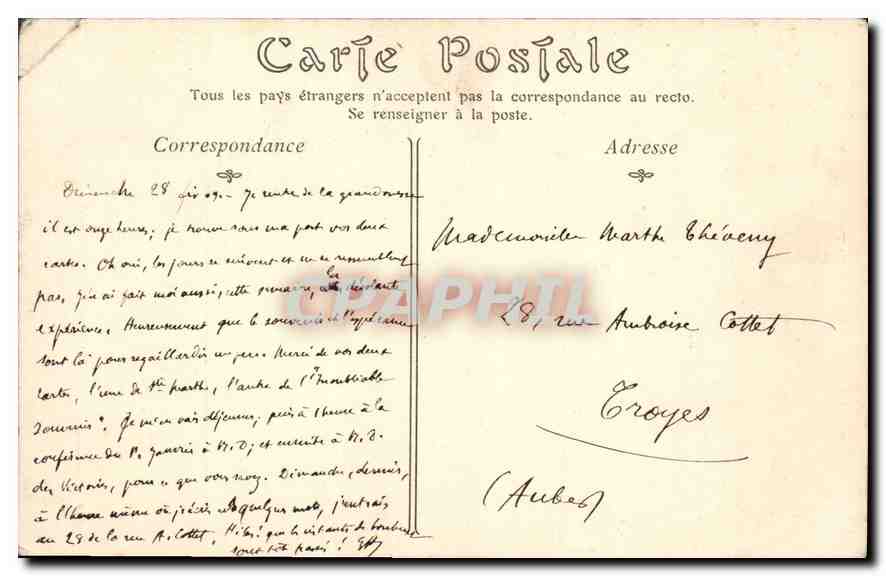 Carte Postale
Tous les pays étrangers n'acceptent pas la correspondance au recto.
Se renseigner à la poste.
Correspondance
Dimanche 28 fév 09. - Je rentre de la grand'messe
il est onze heures; je trouve sous ma porte vos deux
cartes. Oh oui, les jours se suivent et ne se ressemblent
pas. J'en ai fait moi aussi, cette semaine, la désolante
expérience. Heureusement que le souvenir et l'espérance
sont là pour regaillardir un peu. Merci de vos deux
cartes, l'une de Ste Marthe, l'autre de l'"Inoubliable
Sommis". Je m'en vais déjeuner, puis à 1 heure à la
conférence du P. Janvier à N. D; et ensuite à N. D.
des Victoires, pour ce que vous savez. Dimanche, dernier,
à l'heure même où j'écris ces quelques mots, j'entrais
au 28 de la rue A. Cottet. Hélas! que les instants de bonheur
sont tôt passés!
Adresse
Mademoiselle Marthe Théveny
28, rue Ambroise Cottet
Troyes
(Aube)
CPAPHIL